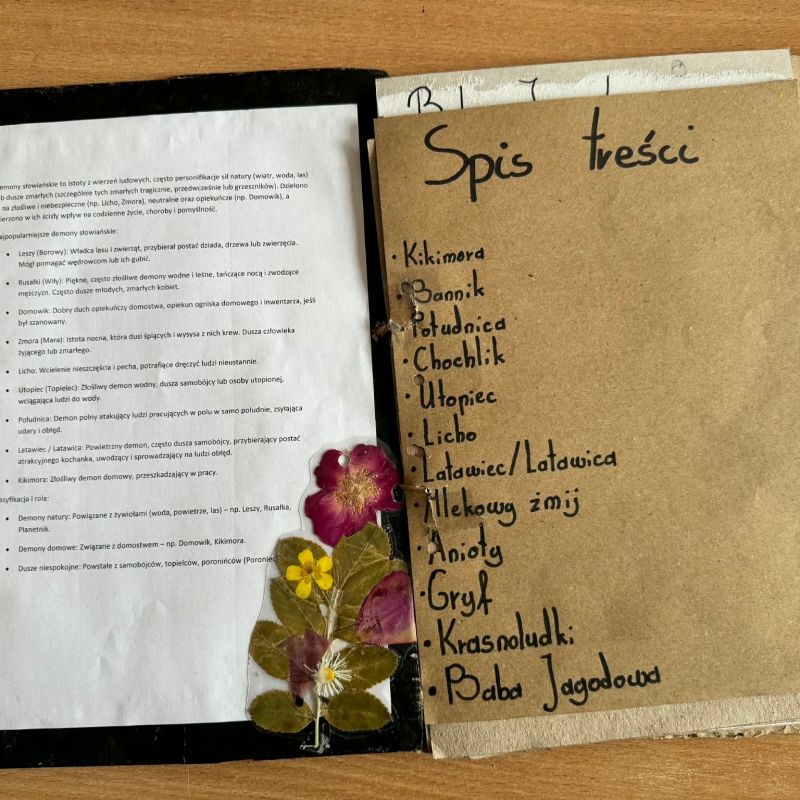 emony słowiańskie to istoty z wierzeń ludowych, często personifikacje sił natury (wiatr, woda, las)
b dusze zmarłych (szczególnie tych zmarłych tragicznie, przedwcześnie lub grzeszników). Dzielono
na złośliwe i niebezpieczne (np. Licho, Zmora), neutralne oraz opiekuńcze (np. Domowik), a
ierzono w ich ścisły wpływ na codzienne życie, choroby i pomyślność.
ajpopularniejsze demony słowiańskie:
• Leszy (Borowy): Władca lasu i zwierząt, przybierał postać dziada, drzewa lub zwierzęcia.
Mógł pomagać wędrowcom lub ich gubić.
• Rusałki (Wiły): Piękne, często złośliwe demony wodne i leśne, tańczące nocą i zwodzące
mężczyzn. Często dusze młodych, zmarłych kobiet.
• Domowik: Dobry duch opiekuńczy domostwa, opiekun ogniska domowego i inwentarza, jeśli
był szanowany.
• Zmora (Mara): Istota nocna, która dusi śpiących i wysysa z nich krew. Dusza człowieka
żyjącego lub zmarłego.
• Licho: Wcielenie nieszczęścia i pecha, potrafiące dręczyć ludzi nieustannie.
• Utopiec (Topielec): Złośliwy demon wodny, dusza samobójcy lub osoby utopionej,
wciągająca ludzi do wody.
• Południca: Demon polny atakujący ludzi pracujących w polu w samo południe, zsyłająca
udary i obłęd.
• Latawiec / Latawica: Powietrzny demon, często dusza samobójcy, przybierający postać
atrakcyjnego kochanka, uwodzący i sprowadzający na ludzi obłęd.
• Kikimora: Złośliwy demon domowy, przeszkadzający w pracy.
asyfikacja i rola:
• Demony natury: Powiązane z żywiołami (woda, powietrze, las) – np. Leszy, Rusałka,
Płanetnik.
• Demony domowe: Związane z domostwem – np. Domowik, Kikimora.
• Dusze niespokojne: Powstałe z samobójców, topielców, poronińców (Poroniec
Spis treści
• Kikimora
• Bannik
Południca
• Chochlik
• Utopiec
• Licho
• Latawiec/Latawica
• Mlekowy żmij
• Anioły
• Gryf
• Krasnoludki
• Baba Jagodowa